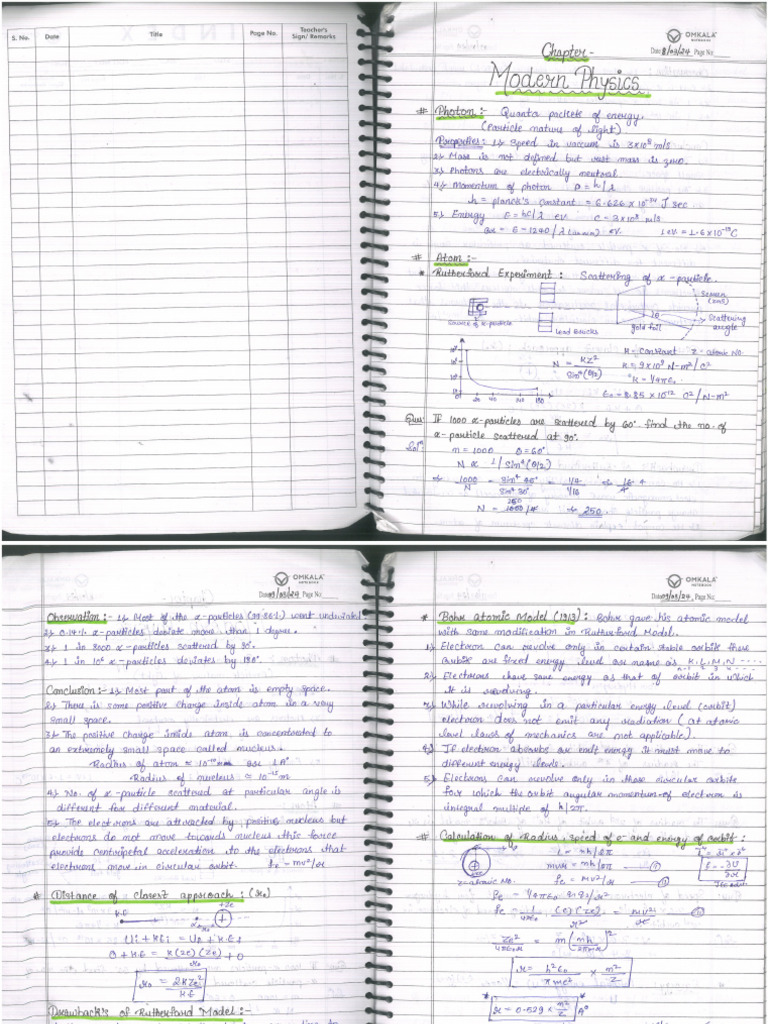 S. No.
Date
Title
Page No.
Teacher's Sign/ Remarks
OMKALA
NOTEBOOK
Date 8/03/24 Page No.
Chapter -
Modern Physics
# Photon :- Quanta packets of energy.
(Particle nature of light)
Properties: 1) Speed in vaccum is 3×10⁸ m/s
2) Mass is not defined but rest mass is zero.
3) Photons are electrically neutral.
4) Momentum of photon P = h/λ
h = planck's constant = 6.626 × 10⁻³⁴ J sec
5) Energy E = hc/λ eV C = 3×10⁸ m/s
or E = 1240/λ (in nm) eV 1 eV = 1.6×10⁻¹⁹ C
# Atom :-
* Rutherford Experiment : Scattering of α-particle.
Screen
(ZnS)
θ
Scattering angle
Source of α-particle
Lead Bricks
gold foil
N = KZ²/Sin⁴(θ/2)
K = constant Z = atomic NO.
K = 9×10⁹ N-m²/C²
K = 1/4πε₀
ε₀ = 8.85 × 10⁻¹² C²/N-m²
Ques: If 1000 α-particles are scattered by 60° find the no. of
α-particle scattered at 90°.
Solⁿ: n = 1000 θ = 60°
N ∝ 1/Sin⁴(θ/2)
1000/N = Sin⁴ 45°/Sin⁴ 30° = 1/4/1/16 ⇒ 16/4
N = 1000/4 ⇒ 250
OMKALA
NOTEBOOK
Date 09/03/24 Page No.
Observation :- 1) Most of the α-particles (99.86%) went undeviated
2) 0.14% α-particles deviate more than 1 degree.
3) 1 in 8000 α-particles scattered by 90°.
4) 1 in 10⁶ α-particles deviates by 180°.
Conclusion :- 1) Most part of the atom is empty space.
2) There is some positive charge inside atom in a very
small space.
3) The positive charge inside atom is concentrated to
an extremely small space called nucleus.
Radius of atom ≈ 10⁻¹⁰ m or 1 A°
Radius of nucleus ≈ 10⁻¹⁵ m
4) No. of α-particle scattered at particular angle is
different for different material.
5) The electrons are attracted by positive nucleus but
electrons do not move towards nucleus this force
provide centripetal acceleration to the electrons that
electrons move in circular orbit. fc = mv²/r
* Distance of closest approach : (r₀)
K.E
+Ze
Ui + KEi = Uf + K.Ef
0 + K.E = K(2e)(Ze)/r₀ + 0
r₀ = 2KZe²/KE
Drawbacks of Rutherford Model :-
OMKALA
NOTEBOOK
Date 09/03/24 Page No.
* Bohr atomic Model (1913) : Bohr gave his atomic model
with some modification in Rutherford Model.
1) Electron can revolve only in certain stable orbits these
orbits are fixed energy level are name as K, L, M, N ----
2) Electrons have same energy as that of orbit in which
it is revolving.
3) While revolving in a particular energy level (orbit)
electron does not emit any radiation (at atomic
level laws of mechanics are not applicable).
4) If electron absorbs or emit energy it must move to
different energy levels.
5) Electrons can revolve only in those circular orbits
for which the orbit angular momentum of electron is
integral multiple of h/2π.
# Calculation of Radius, speed of e⁻ and energy of orbit :
L = nh/2π
mvr = nh/2π
fc = mv²/r
Z = atomic No.
fe = 1/4πε₀ q₁q₂/r²
fe = 1/4πε₀ (e)(ze)/r² = mv²/r
Ze²/4πε₀r = m(nh/2πmr)²
r = h²ε₀/πme² × n²/Z
r = 0.529 n²/Z A°